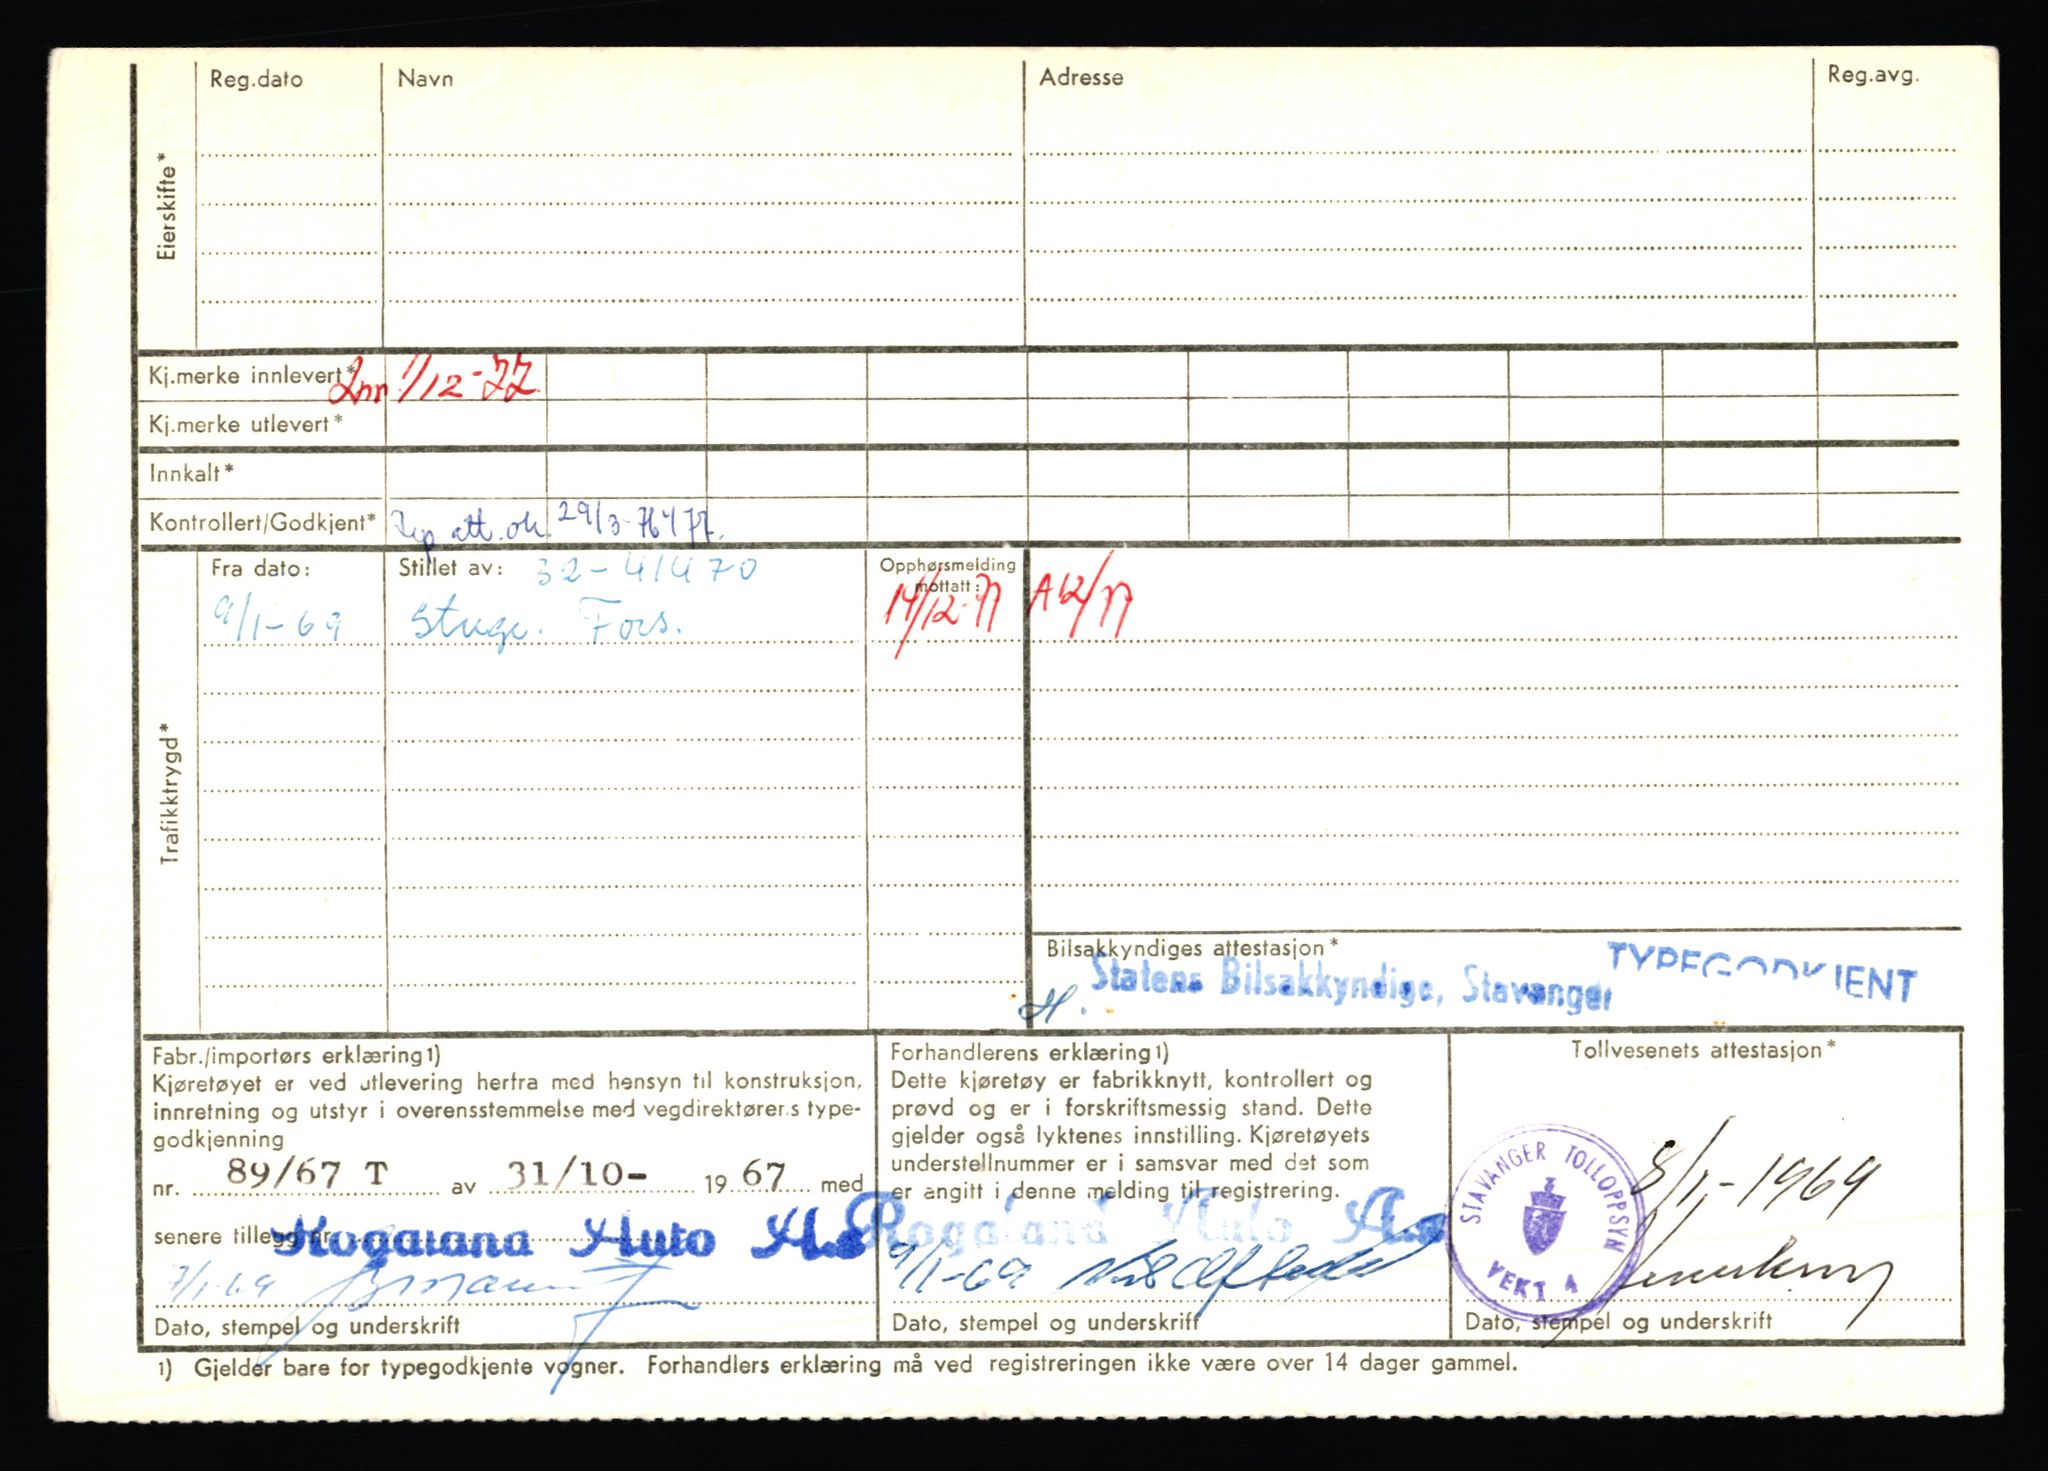 Reg.dato Navn Adresse Reg.avg.
Eierskifte*
Kj.merke innlevert* Inn 1/12-77
Kj.merke utlevert*
Innkalt*
Kontrollert/Godkjent* Rep att. ok. 29/3-76
Fra dato: Stillet av: 32-41470 Opphørsmelding mottatt:
9/1-69 Fors. 14/12-77 A12/77
Trafikktrygd*
Bilsakkyndiges attestasjon*
TYPEGODKJENT
H. Statens Bilsakkyndige, Stavanger
Fabr./importørs erklæring 1)
Kjøretøyet er ved utlevering herfra med hensyn til konstruksjon,
innretning og utstyr i overensstemmelse med vegdirektørens type-
godkjenning
nr. 89/67 T av 31/10- 1967 med
senere tillegg nr.
Rogaland Auto A.s
7/1-69
Dato, stempel og underskrift
Forhandlerens erklæring 1)
Dette kjøretøy er fabrikknytt, kontrollert og
prøvd og er i forskriftsmessig stand. Dette
gjelder også lyktenes innstilling. Kjøretøyets
understellnummer er i samsvar med det som
er angitt i denne melding til registrering.
Rogaland Auto A.s
9/1-69
Dato, stempel og underskrift
Tollvesenets attestasjon*
STAVANGER TOLLOPPSYN
VEKT 4
8/1-1969
Dato, stempel og underskrift
1) Gjelder bare for typegodkjente vogner. Forhandlers erklæring må ved registreringen ikke være over 14 dager gammel.